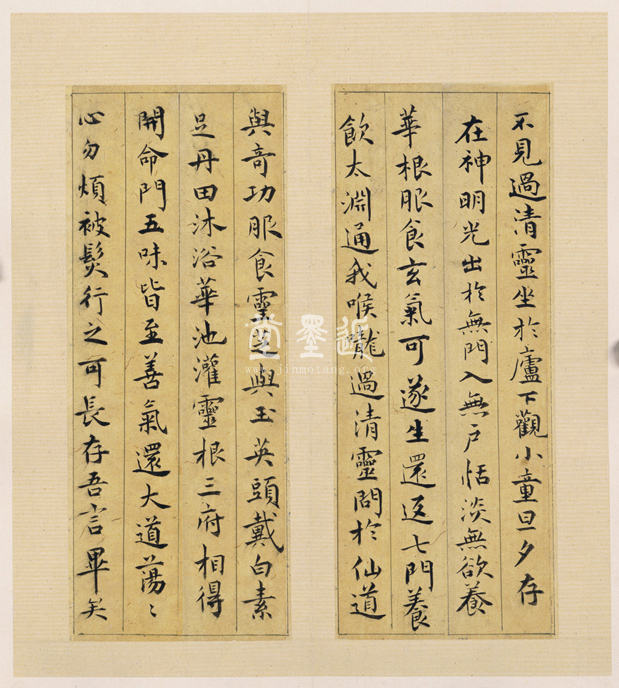 不見過清靈坐於廬下觀小童旦夕存
在神明光出於無門入無戶恬淡無欲養
華根服食玄氣可遂生還返七門養
飲太淵通我喉嚨過清靈問於仙道
與奇功服食靈芝與玉英頭戴白素
足丹田沐浴華池灌靈根三府相得
開命門五味皆至善氣還大道蕩〻
心勿煩被髮行之可長存吾言畢矣
近墨堂
www.jinmotang.org